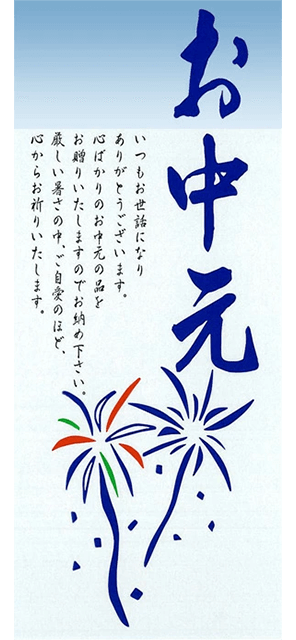 お中元
いつもお世話になり
ありがとうございます。
心ばかりのお中元の品を
お贈りいたしますのでお納め下さい。
厳しい暑さの中、ご自愛のほど、
心からお祈りいたします。